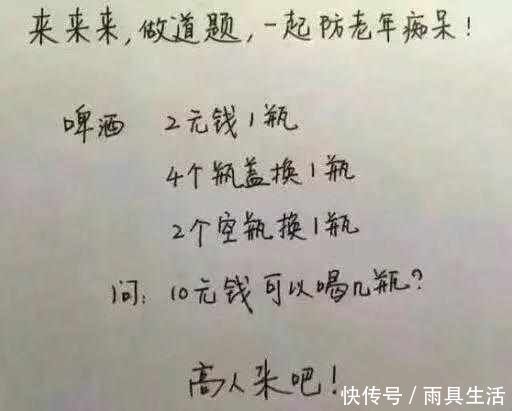 来来来,做道题,一起防老年痴呆!
啤酒 2元钱1瓶
4个瓶盖换1瓶
2个空瓶换1瓶
问:10元钱可以喝几瓶?
高人来吧!
快传号/雨具生活